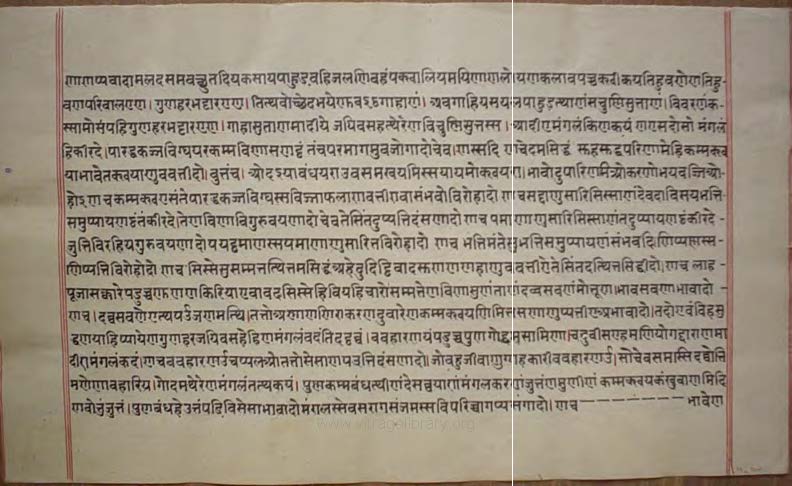 णाणप्पवादामलदसमवच्छुतदियकसायपाहुडुवहिजलणिवहंपकवालियमयिणाणलोयणकलावपच्चकदीकयतिहुवणेणतिहु-
वणपरिवालएण । गुणहरभडारएण । तित्थवोच्छेदभयेण गाहाणं । अवगाहियसयलपाहुडत्थाणंसचुणिसुत्ताणं । विवरणंक-
स्सामोसंपहिगुणहरभडारएण । गाहासुत्ताणमादीये जयिवसहत्थेरेणविचुणिसुत्तस्स । आदीएमंगलंकिणकयं णएसदोसो मंगलं
हिकीरदे । पारद्धकज्जविग्घयरकम्मविणासणट्ठं तंचपरमागमुवजोगादोचेव । णस्सदि णचेदमसिद्धं सुहसुद्धपरिणामेहिकम्मक्ख
याभावेतक्खयाणुववत्तीदो । वुत्तंच । ओदइयाबंधयराउवसमखयमिस्सयायमोक्खयरा । भावोदुपारिणमिओकरणोभयवज्जिओ
होइ णचकम्मक्खएसंतेपारद्धकज्जविग्घस्सविज्जाफलाणावत्तीएवासंभवोविरोहादो णचसद्दाणुसारिसिस्साणंदेवदाविसयभत्ति-
समुप्पायणट्ठंतंकीरदे । तेणविणाविगुरुवयणादोचेवतेसिंतदुप्पत्तिदंसणादो णचपमाणाणुसारिसिस्साणंतदुप्पायणट्ठंकीरदे-
जुत्तिविरहियगुरुवयणादोपयट्टमाणस्सपमाणाणुसारित्तविरोहादो णच भत्तिमंतेसुभत्तिसमुप्पायणंसंभवदि । णिप्पण्णस्स-
णिप्पत्तिविरोहोदो णच सिस्सेसुसम्मत्तत्थित्तमसिद्धं अहेदुदिट्ठिवादसुणणण्णहाणुववत्तीतेतेसिंतदत्थित्तसिद्धीदो । णच लाह-
पूजासक्कारेपडुच्चसुणणकिरियाएवावदसिस्सेहिवियहिचारोसम्मत्तेणविणासुणंताणंदव्वसवणंमोत्तूण । भावसवणाभावादो-
णच । दव्वसवणेएत्थपउंजणमत्थि । तत्तोअण्णाणणिराकरणदुवारेणकम्मक्खयणिमित्तसण्णाणुप्पत्तीएअभावादो । तदोएवंविहसु
द्धणयाहिप्पायेणगुणहरजयिवसहेहिणमंगलंवदंतिदट्ठव्वं । ववहारणयंपडुच्चपुणगोदमसामिणा । चदुवीसण्हमणियोगद्दाराणमा
दीएमंगलंकदं । णचववहारणउचप्पलओतत्तोसेसाणपउत्तिदंसणादो । जोबहुजीवाणुग्गहकारीववहारणउ । सोचेवसमस्सिदव्वोत्ति
मणेणावहारिय । गोदमथेरेणमंगलंतत्थकयं । पुण्णकम्मबंधत्थीणंदेसव्वयाणंमंगलकरणंजुत्तंणमुणीणं कम्मक्खयकंखुवाणमिदि
णवोत्तुंजुत्तं । पुण्णबंधहेउत्तंपडिविसेसाभावादोमंगलस्सेवसरागसंजमस्सविपरिच्चागप्पसंगादो । णच ––––––– भावेण
www.vitragelibrary.org